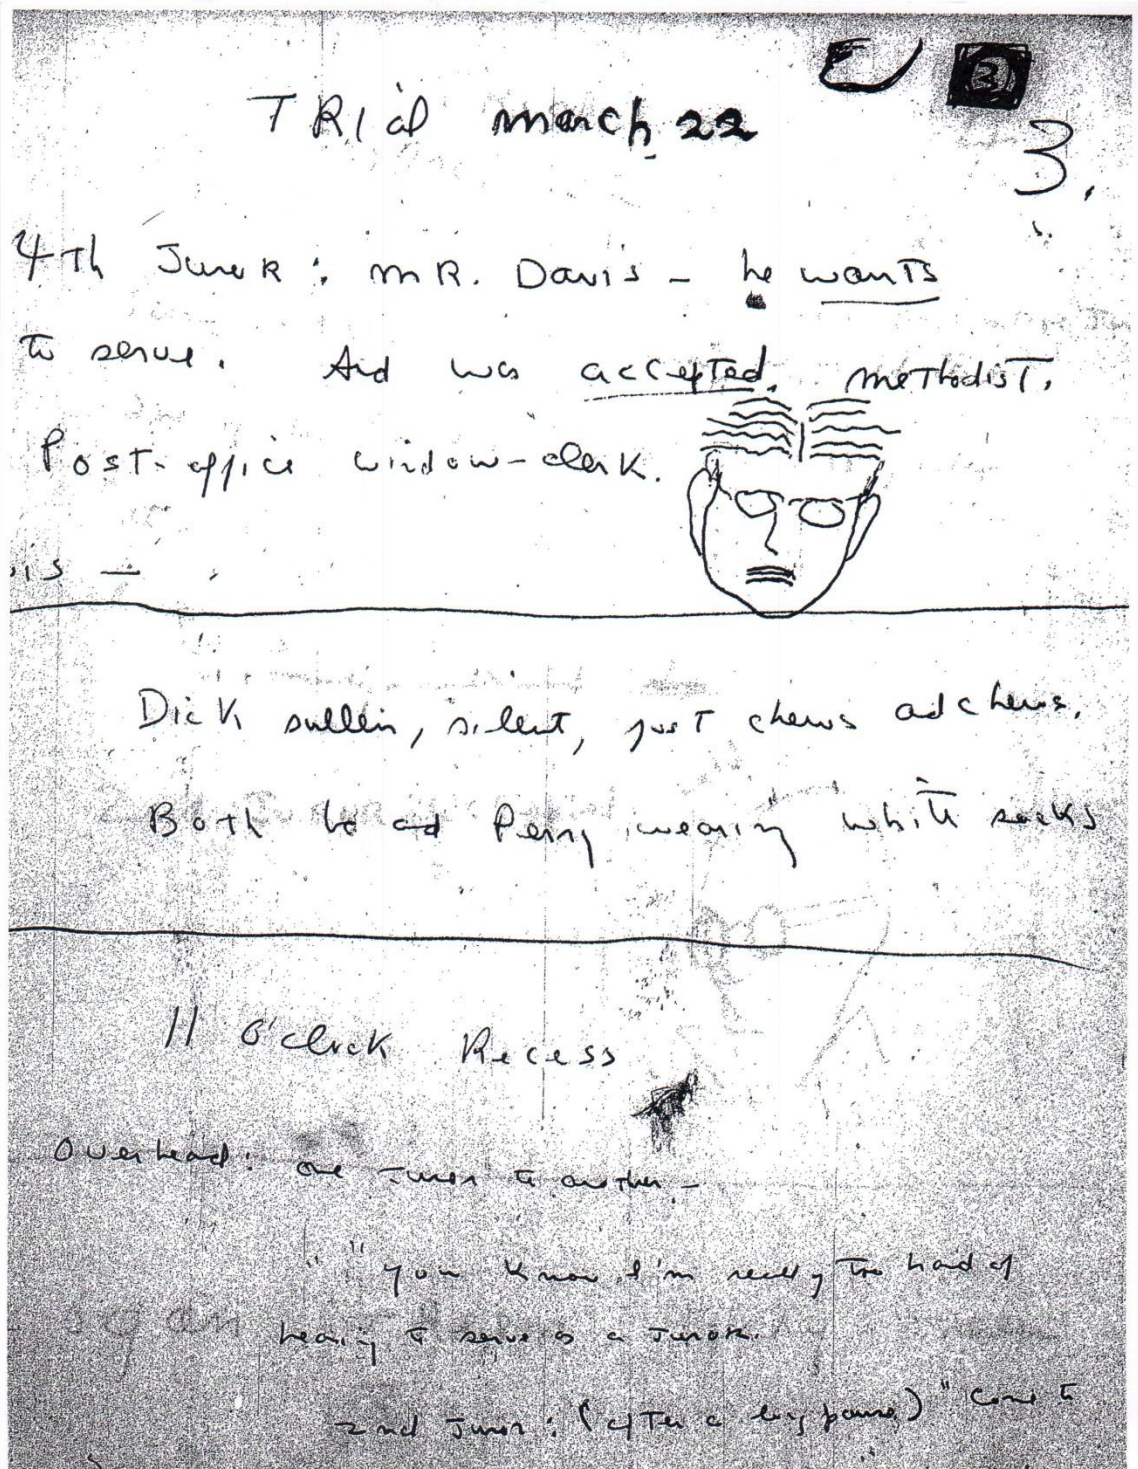 3
TRIal march 22
3.
4Th JuroR: mR. Davis - he wants
to serve. And was accepted. methodist.
Post-office window-clerk.
is —
Dick sullin, silent, just chews and chews.
Both he and Perry wearing white socks
11 o'clock Recess
Overheard: one Juror to another -
" "you know I'm really too hard of
hearing to serve as a Juror.
2nd Juror: (after a long pause) "Come to